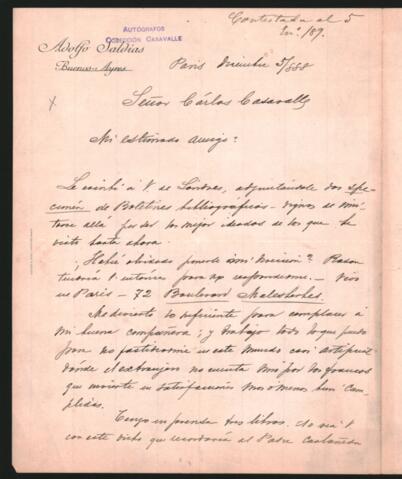 Contestada al 5
En.º/89.
AUTÓGRAFOS
COLECCIÓN CASAVALLE
Adolfo Saldías
Buenos-Ayres
Paris Diciembre 5/888
Señor Cárlos Casavalle
Mi estimado amigo:
Le escribí á V de Londres, adjuntándole dos spe-
cimen de Boletines bibliográficos - dignos de imi-
tarse allá por ser los mejor ideados de los que he
visto hasta ahora.
¿Habré olvidado ponerle mi direccion? Razon
tendria V entonces para no responderme. - Vivo
en Paris - 72 Boulevard Malesherbes.
Me divierto lo suficiente para complacer á
mi buena compañera; y trabajo todo lo que puedo
para no fastidiarme en este mundo casi artificial
donde el extranjero no cuenta sinó por los francos
que invierte en satisfacciones mas ó menos bien cum-
plidas.
Tengo en prensa tres libros. No vá V
con este dicho que recordaría al Padre Castañeda